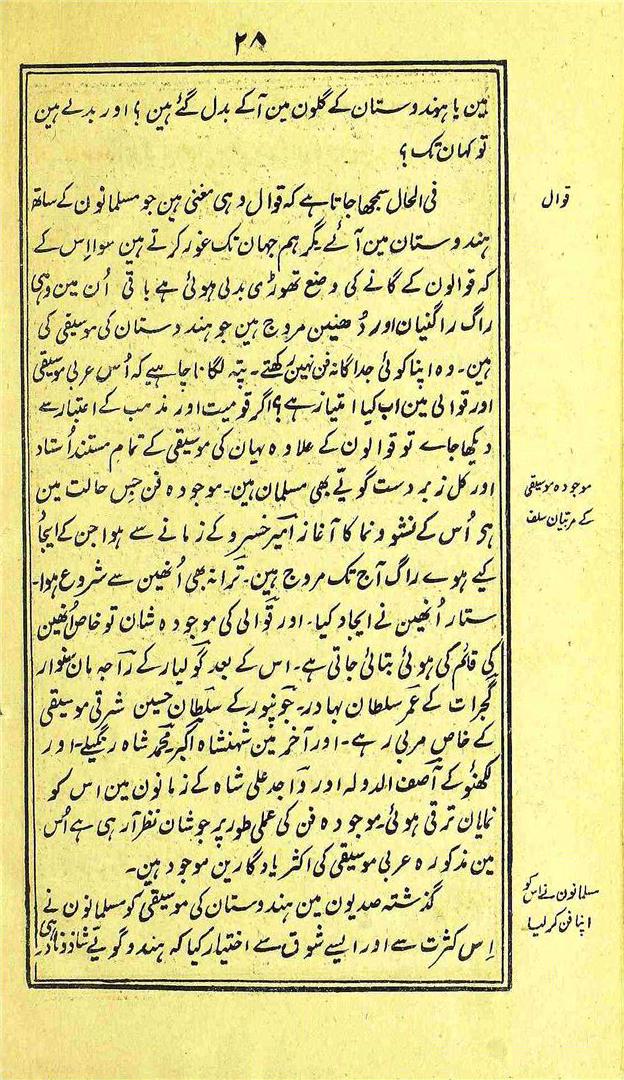 ۲۸
ہین یا ہندوستان کے گلون مین آکے بدل گئے ہین ؟ اور بدلے ہین
تو کہان تک ؟
قوال
فی الحال سمجھا جاتا ہے کہ قوال وہی مغنی ہین جو مسلمانون کے ساتھ
ہندوستان مین آئے۔ مگر ہم جہان تک غور کرتے ہین سوا اِس کے
کہ قوالون کے گانے کی وضع تھوڑی بدلی ہوئی ہے باقی اُن مین وہی
راگ راگنیان اور دُھنین مروج ہین جو ہندوستان کی موسیقی کی
ہین۔ وہ اپنا کوئی جداگانہ فن نہین رکھتے۔ پتہ لگانا چاہیے کہ اُس عربی موسیقی
اور قوالی مین اب کیا امتیاز ہے؟ اگر قومیت اور مذہب کے اعتبار سے
دیکھا جاے تو قوالون کے علاوہ یہان کی موسیقی کے تمام مستند اُستاد
اور کل زبردست گویے بھی مسلمان ہین۔ موجودہ فن جس حالت مین
موجودہ موسیقی
کے مربیان سلف
ہی اُس کے نشو و نما کا آغاز امیر خسرو کے زمانے سے ہوا جن کے ایجاد
کیے ہوے راگ آج تک مروج ہین۔ ترانہ بھی اُنھین سے شروع ہوا۔
ستار اُنھین نے ایجاد کیا۔ اور قوالی کی موجودہ شان تو خاص اُنھین
کی قائم کی ہوئی بتائی جاتی ہے۔ اس کے بعد گولیار کے راجہ مان سنوار
گجرات کے عمر سلطان بہادر۔ جونپور کے سلطان حسین شرقی موسیقی
کے خاص مربی رہے۔ اور آخر مین شہنشاہ اکبر۔ محمد شاہ رنگیلے۔ اور
لکھنؤ کے آصف الدولہ اور واجد علی شاہ کے زمانون مین اس کو
نمایان ترقی ہوئی۔ موجودہ فن کی عملی طور پر جو شان نظر آرہی ہے اُس
مین مذکورہ عربی موسیقی کی اکثر یادگارین موجود ہین۔
گذشتہ صدیون مین ہندوستان کی موسیقی کو مسلمانون نے
مسلمانون نے اس کو
اپنا فن کر لیا۔
اِس کثرت سے اور ایسے شوق سے اختیار کیا کہ ہندو گویے شاذ و نادر ہی